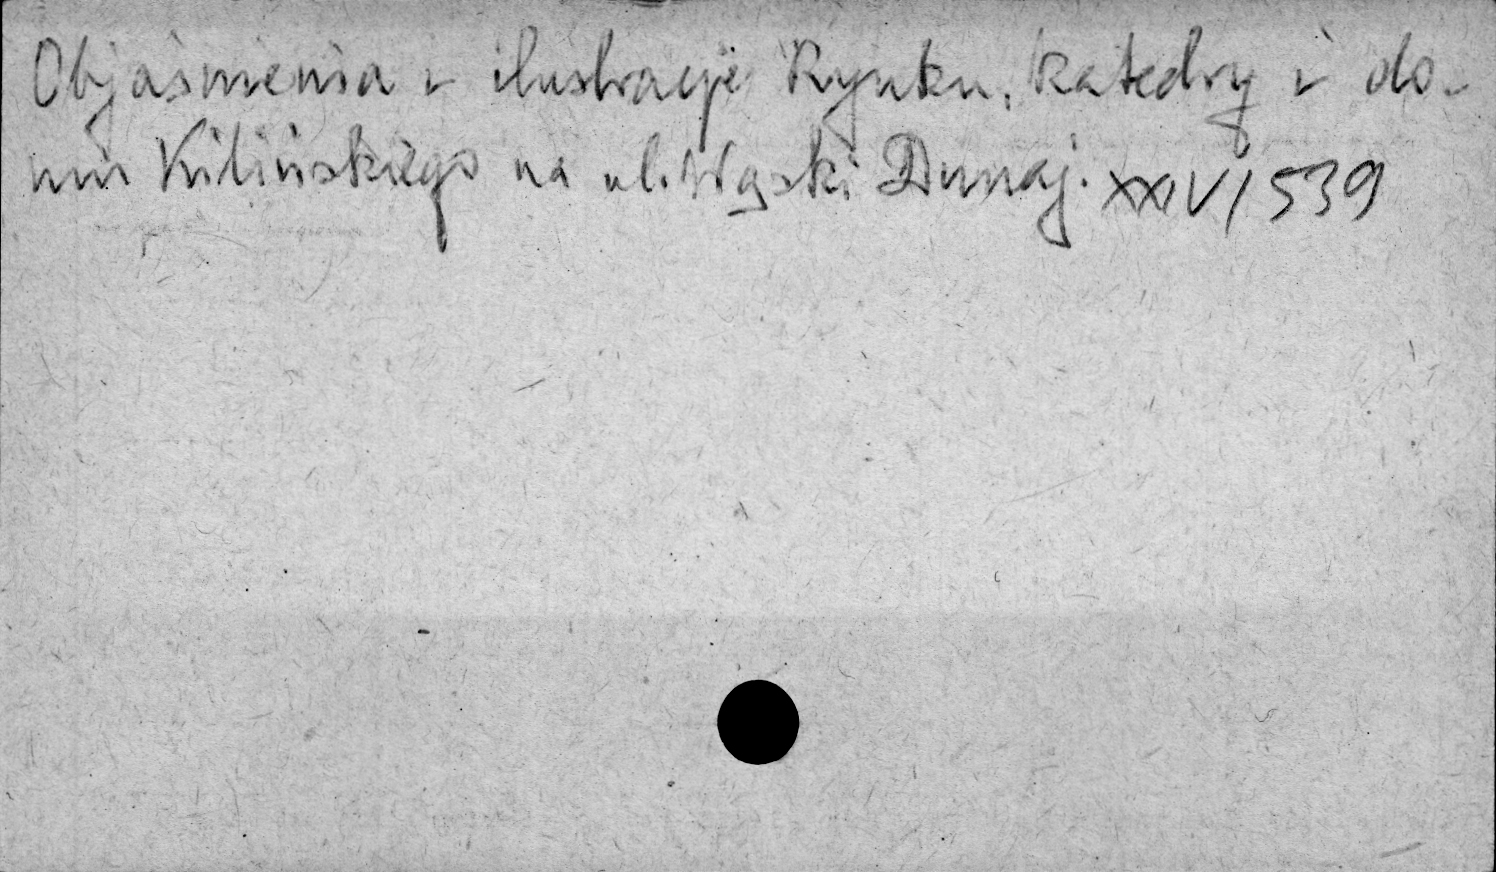 Objaśnienia i ilustracje Rynku, katedry i do-
mu Kilińskiego na ul. Wąski Dunaj. XXIV/539